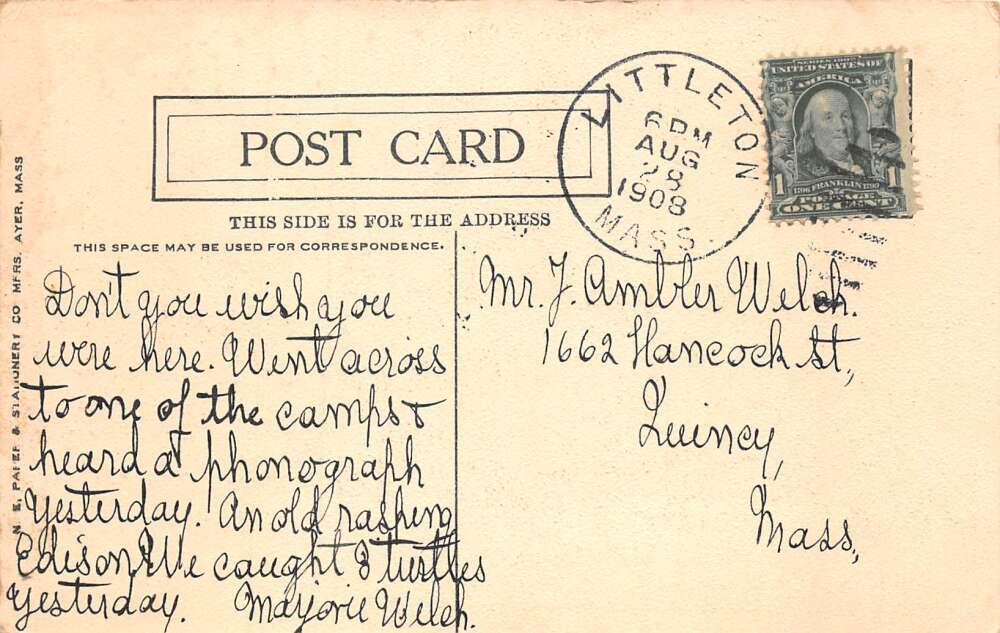 POST CARD
THIS SIDE IS FOR THE ADDRESS
THIS SPACE MAY BE USED FOR CORRESPONDENCE.
N. E. PAPER & STATIONERY CO MFRS. AYER, MASS
LITTLETON
6 PM
AUG
28
1908
MASS
SERIES 1902
UNITED STATES OF
AMERICA
1 1
1706 FRANKLIN 1790
POSTAGE
ONE CENT
Don't you wish you
were here. Went across
to one of the camps &
heard a phonograph
yesterday. An old rasping
Edison. We caught 8 turtles
yesterday. Marjorie Welch.
Mr. J. Ambler Welch.
1662 Hancock St.,
Quincy,
Mass.,